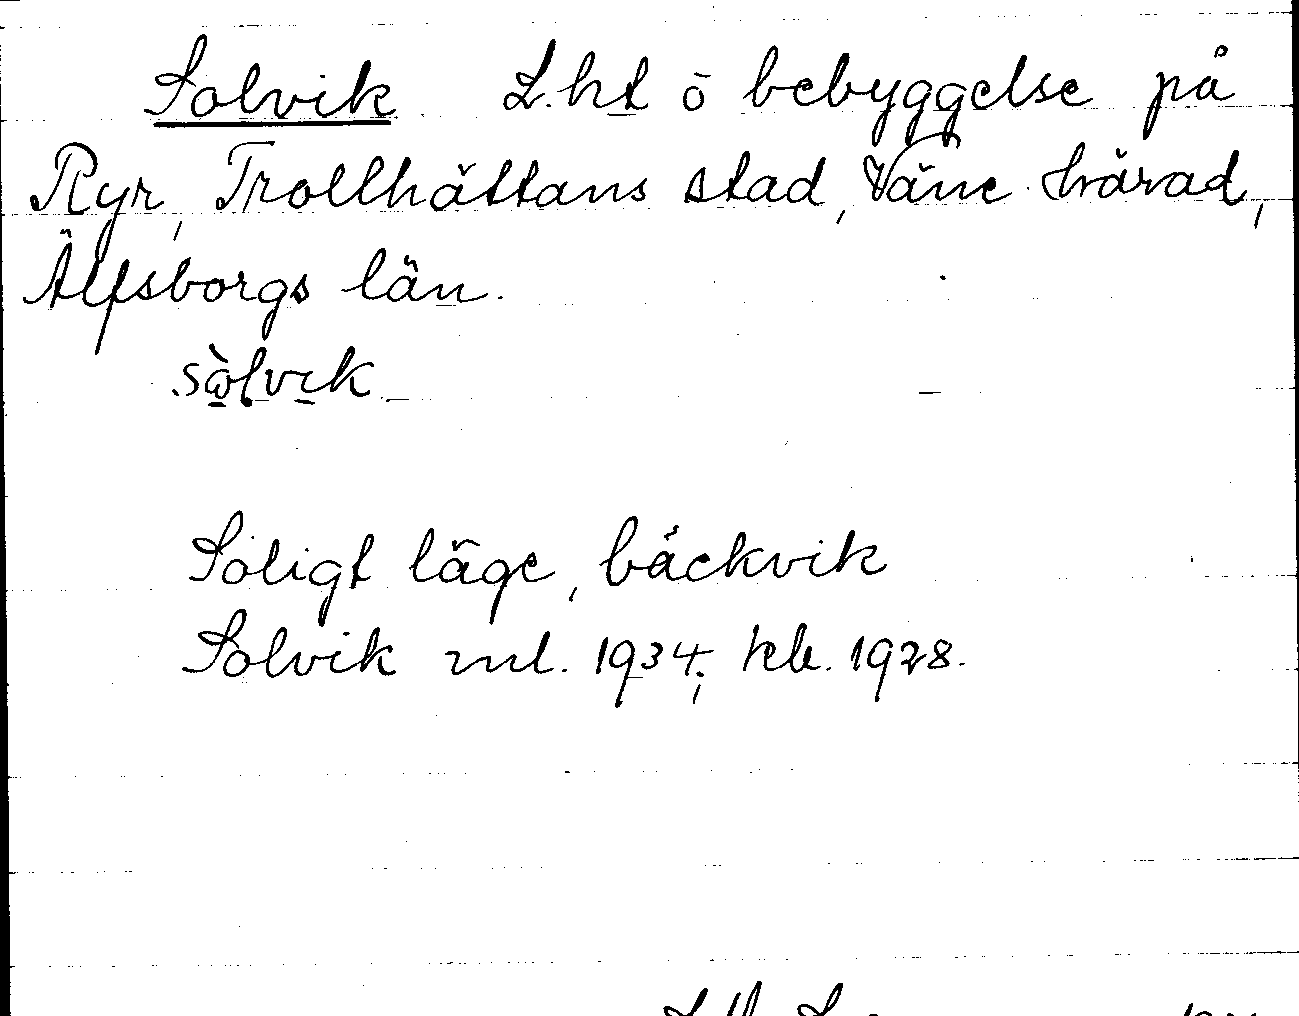 Solvik L.ht ö bebyggelse på
Ryr, Trollhättans stad, Väne härad,
Älfsborgs län.
sòlvik
Soligt läge, bäckvik
Solvik ml. 1934; kb. 1928.